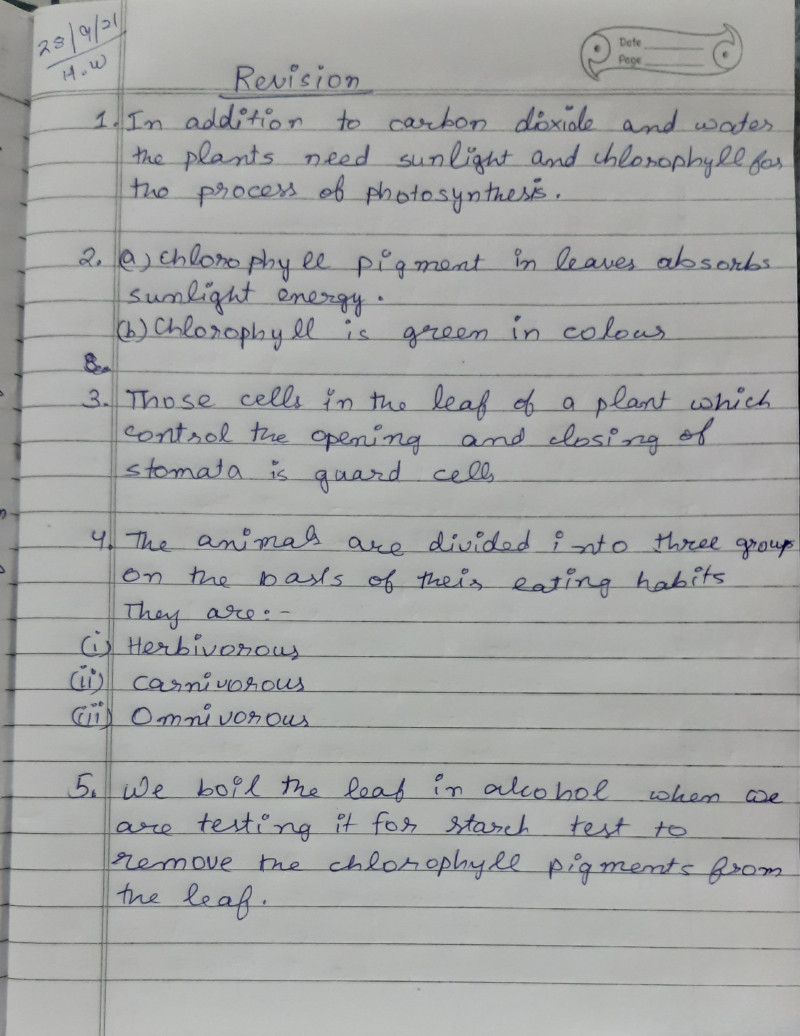 28/9/21
H.W
Date
Page
Revision
1. In addition to carbon dioxide and water
the plants need sunlight and chlorophyll for
the process of photosynthesis.
2. (a) chlorophyll pigment in leaves absorbs
sunlight energy.
(b) Chlorophyll is green in colour
3. Those cells in the leaf of a plant which
control the opening and closing of
stomata is guard cells
4. The animals are divided into three group
on the basis of their eating habits
They are:-
(i) Herbivorous
(ii) Carnivorous
(iii) Omnivorous
5. We boil the leaf in alcohol when we
are testing it for starch test to
remove the chlorophyll pigments from
the leaf.